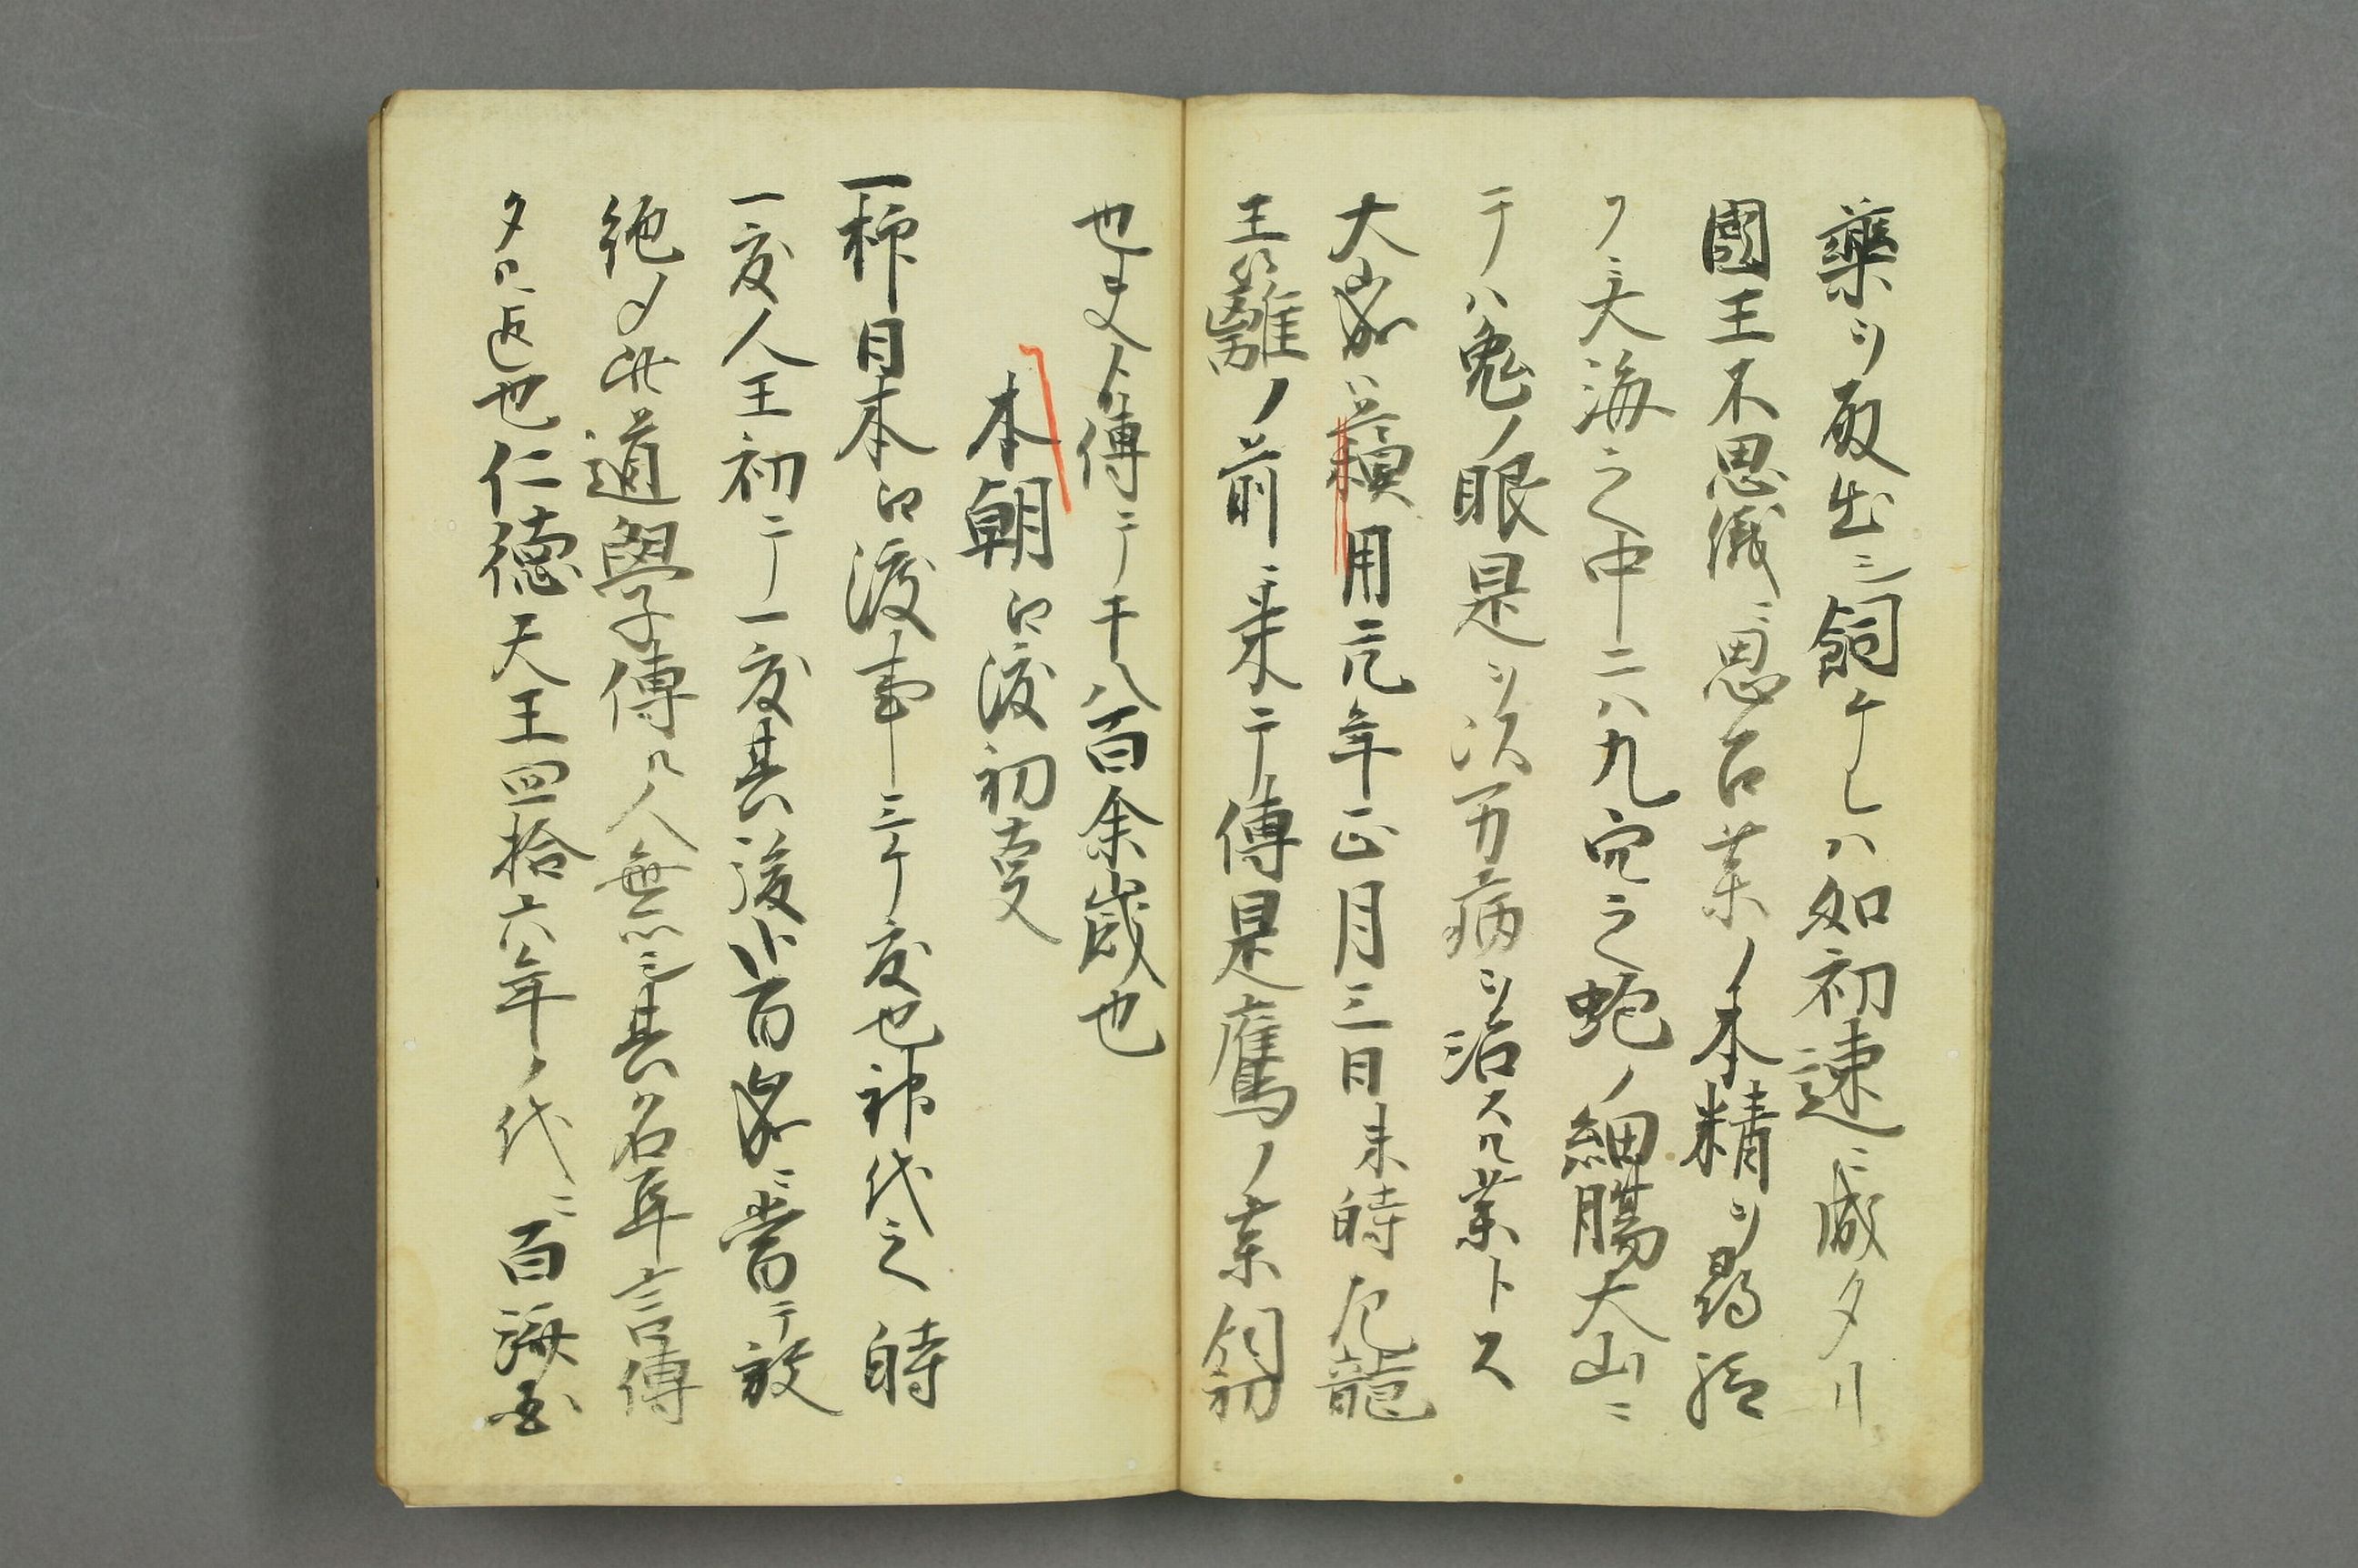 薬ヲ取出シ飼ケレハ如初速ニ威タリ
國王不思儀ニ思召薬ノ本精ヲ
フニ大海之中ニハ九穴之蛇ノ細腸大山ニ
テハ兔ノ眼是ヲ以万病ヲ治スル薬トス
大家ハ用元年正月三日未時
王ハ籬ノ前ニ来テ傳是鷹ノ薬飼初
也夫ヨリ傳テ千八百余歳也
本朝ニ渡初夏
一柿日本ニ渡事三ケ度也神代之時
一度人王初テ一度其後八百家ニ當テ放
絶メ此道學子傳ル人無シ其名耳言傳
タル返也仁徳天王四拾六年ノ代ニ百海